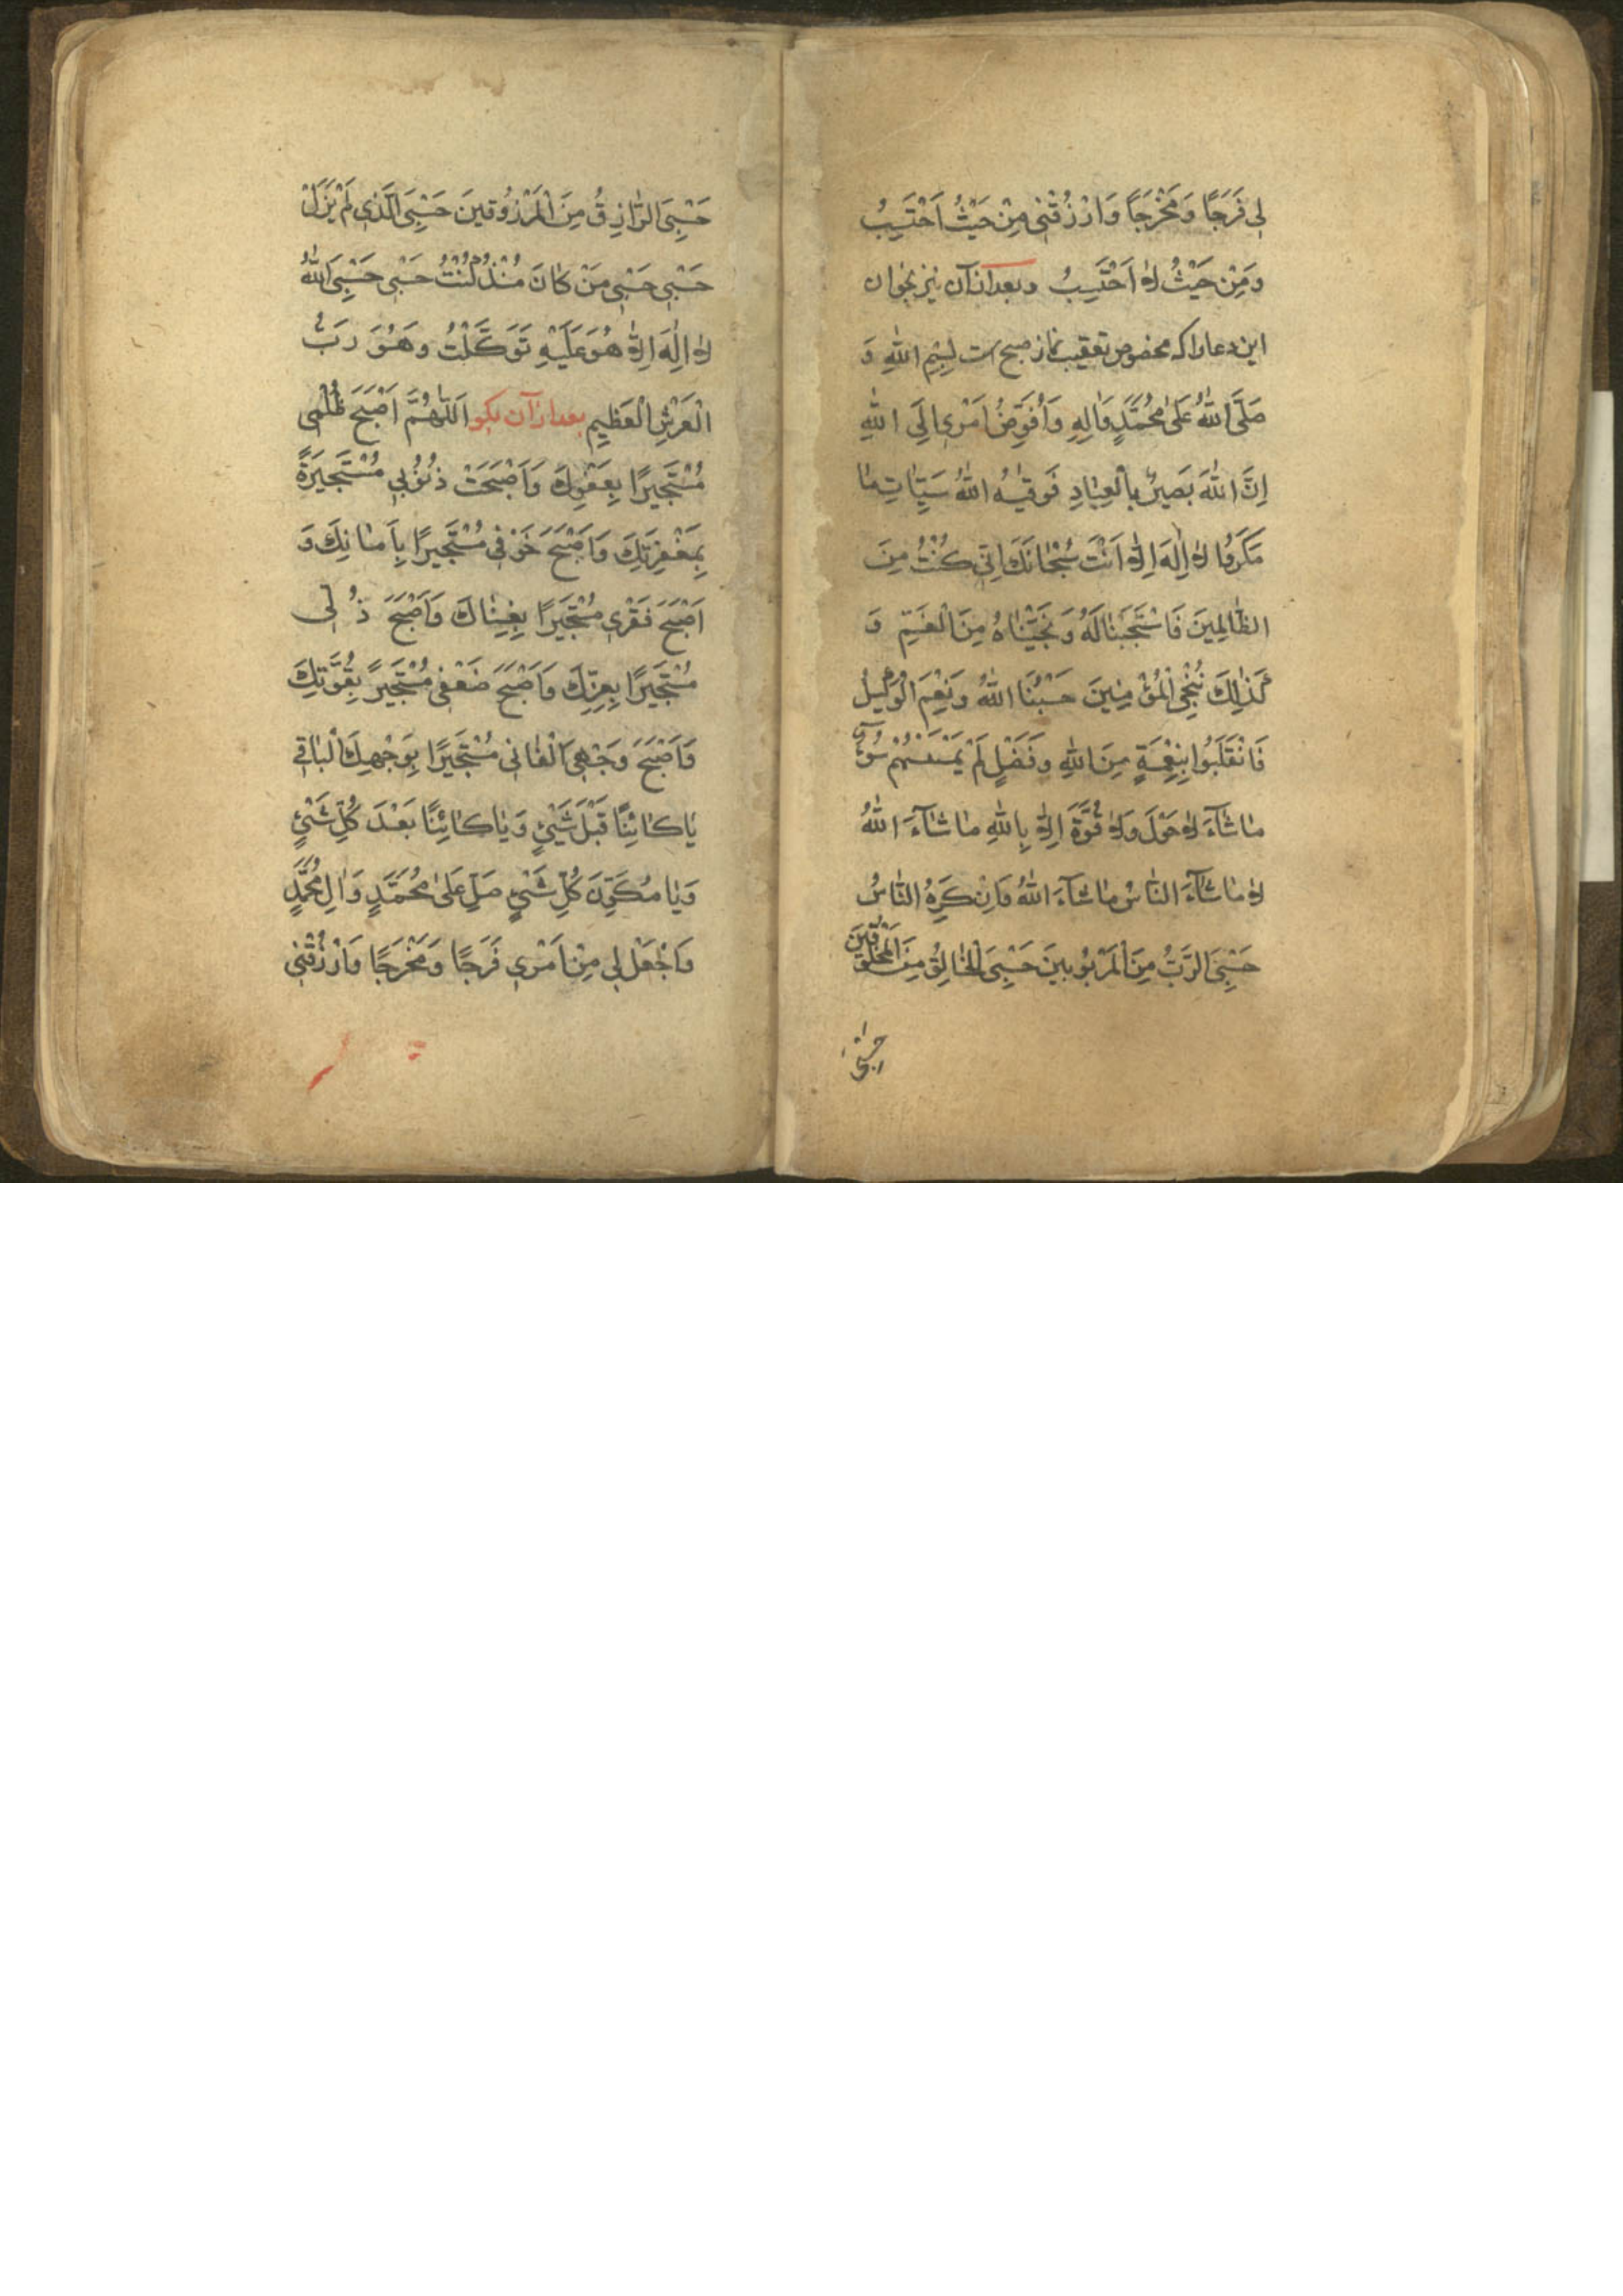 لِي فَرَجًا وَمَخْرَجًا وَارْزُقْنِي مِنْ حَيْثُ اَحْتَسِبُ
وَمِنْ حَيْثُ لَا اَحْتَسِبُ وبعد از آن نیز بخوان
این دعا را که مخصوص تعقیب نماز صبح است بِسْمِ اللهِ وَ
صَلَّى اللهُ عَلىٰ مُحَمَّدٍ وَاٰلِهِ وَاُفَوِّضُ اَمْرِي اِلَى اللهِ
اِنَّ اللهَ بَصِيرٌ بِالْعِبٰادِ فَوَقٰيهُ اللهُ سَيِّاٰتِ مٰا
مَكَرُوا لَا اِلٰهَ اِلَّا اَنْتَ سُبْحٰانَكَ اِنّي كُنْتُ مِنَ
الظّٰالِمِينَ فَاسْتَجَبْنٰا لَهُ وَنَجَّيْنٰاهُ مِنَ الْغَمِّ وَ
كَذٰلِكَ نُنْجِي الْمُؤْمِنِينَ حَسْبُنَا اللهُ وَنِعْمَ الْوَكِيلُ
فَانْقَلَبُوا بِنِعْمَةٍ مِنَ اللهِ وَفَضْلٍ لَمْ يَمْسَسْهُمْ سُوۤءٌ
مٰا شٰاۤءَ لَا حَوْلَ وَلَا قُوَّةَ اِلَّا بِاللهِ مٰا شٰاۤءَ اللهُ
لَا مٰا شٰاۤءَ النّٰاسُ مٰا شٰاۤءَ اللهُ وَاِنْ كَرِهَ النّٰاسُ
حَسْبِيَ الرَّبُّ مِنَ الْمَرْبُوبِينَ حَسْبِيَ الْخٰالِقُ مِنَ الْمَخْلُوقِينَ
حَسْبِيَ
حَسْبِيَ الرّٰازِقُ مِنَ الْمَرْزُوقِينَ حَسْبِيَ الَّذِي لَمْ يَزَلْ
حَسْبِي حَسْبِي مَنْ كٰانَ مُنْذُ كُنْتُ حَسْبِي حَسْبِيَ اللهُ
لَا اِلٰهَ اِلَّا هُوَ عَلَيْهِ تَوَكَّلْتُ وَهُوَ رَبُّ
الْعَرْشِ الْعَظِيمِ بعد از آن بگو اَللّٰهُمَّ اَصْبَحَ ظُلْمِي
مُسْتَجِيرًا بِعَفْوِكَ وَاَصْبَحَتْ ذُنُوبِي مُسْتَجِيرَةً
بِمَغْفِرَتِكَ وَاَصْبَحَ خَوْفِي مُسْتَجِيرًا بِاَمٰانِكَ وَ
اَصْبَحَ فَقْرِي مُسْتَجِيرًا بِغِنٰاكَ وَاَصْبَحَ ذُلِّي
مُسْتَجِيرًا بِعِزِّكَ وَاَصْبَحَ ضَعْفِي مُسْتَجِيرً بِقُوَّتِكَ
وَاَصْبَحَ وَجْهِيَ الْفٰانِي مُسْتَجِيرًا بِوَجْهِكَ الْبٰاقِي
يٰا كٰائِنًا قَبْلَ شَيْئٍ وَيٰا كٰائِنًا بَعْدَ كُلِّ شَيْئٍ
وَيٰا مُكَوِّنَ كُلِّ شَيْئٍ صَلِّ عَلىٰ مُحَمَّدٍ وَاٰلِ مُحَمَّدٍ
وَاجْعَلْ لِي مِنْ اَمْرِي فَرَجًا وَمَخْرَجًا وَارْزُقْنِي